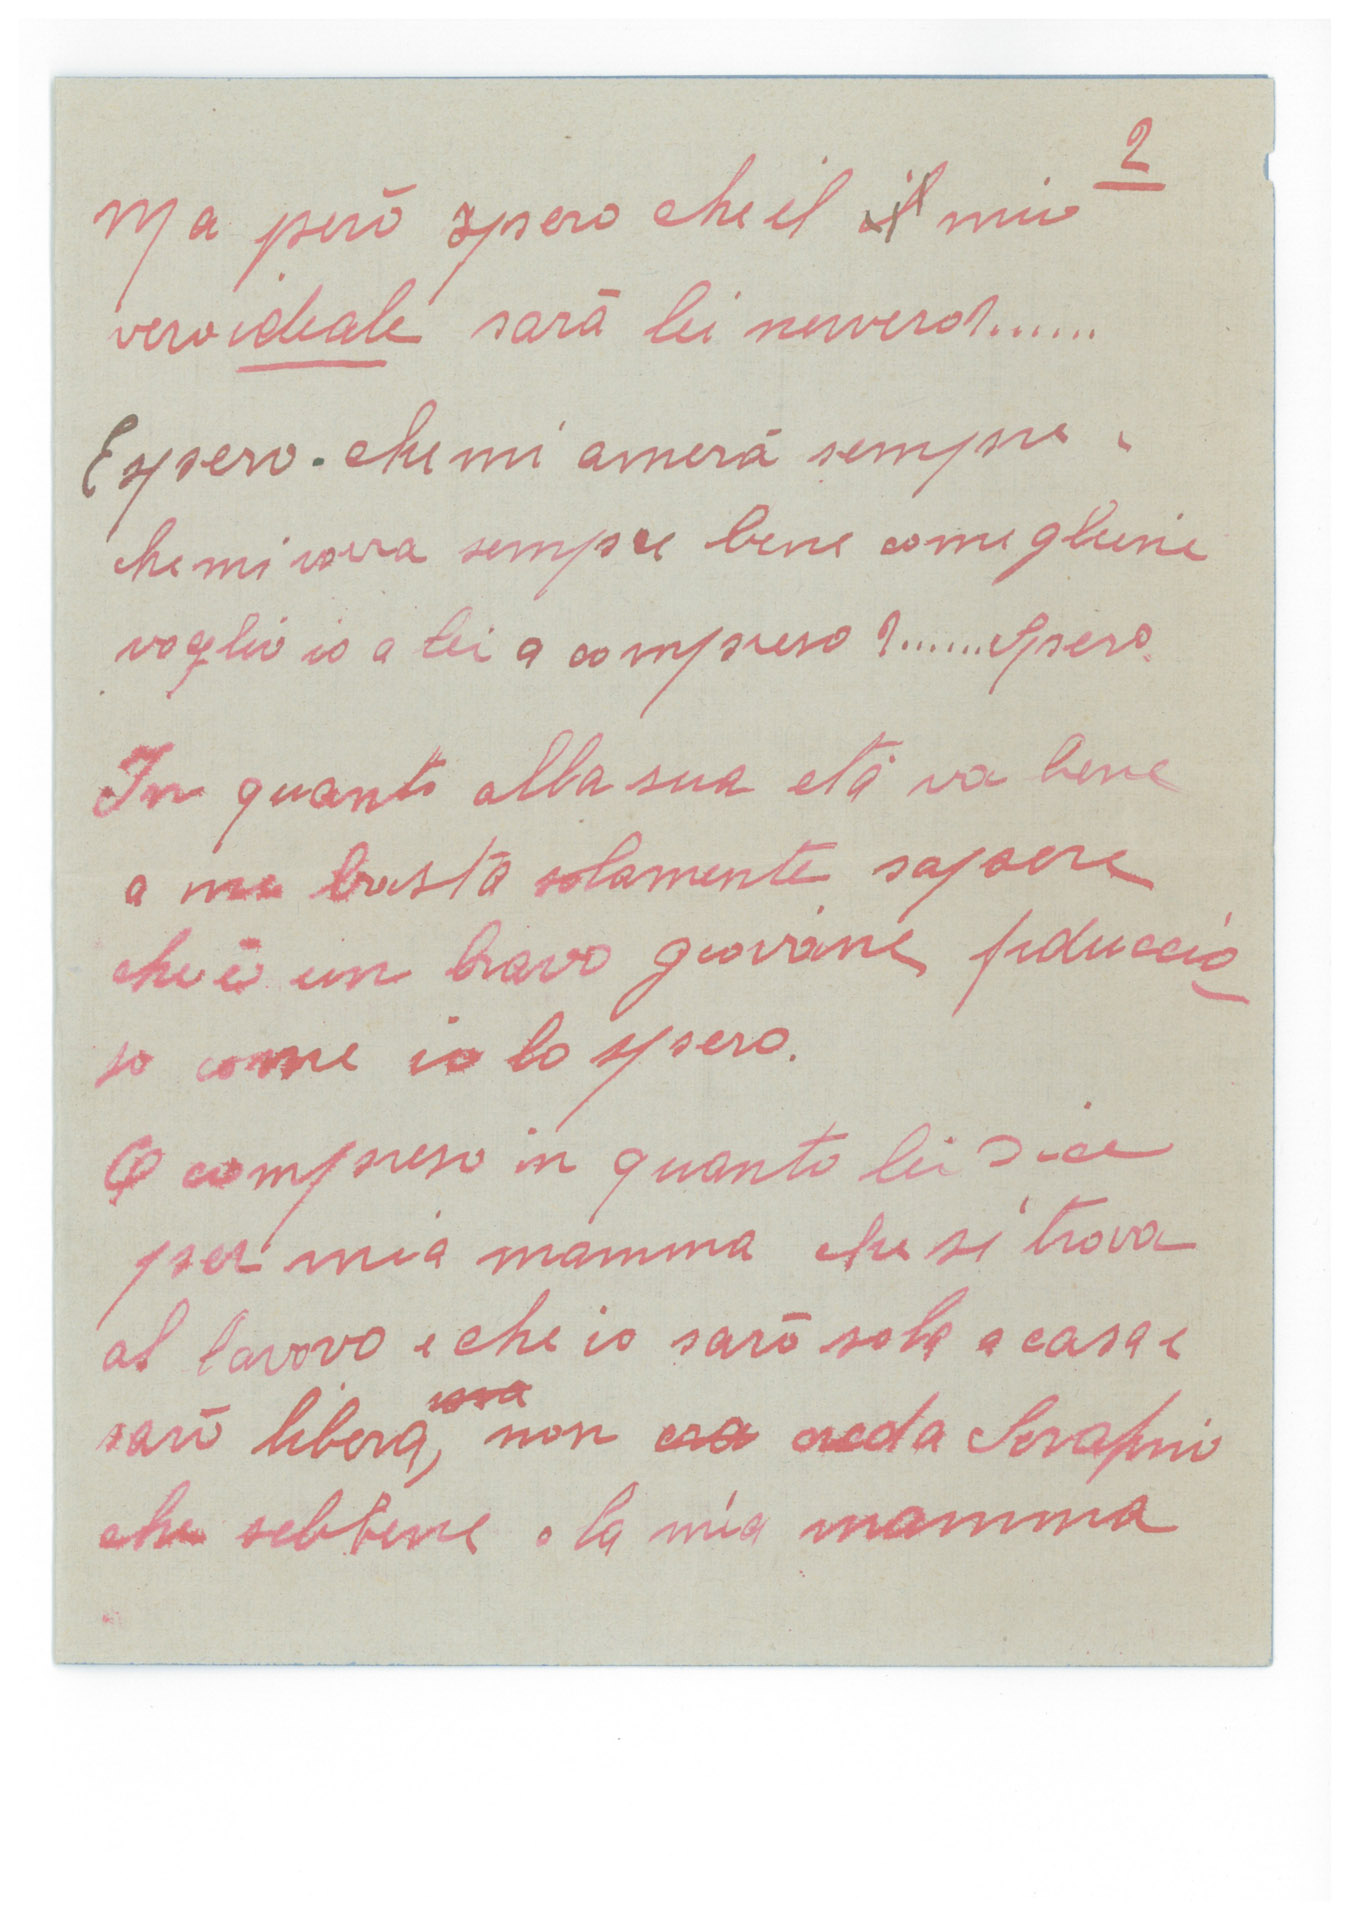 2
Ma però spero che il il mio
vero ideale sarà lei nevvero?......
E spero. che mi amerà sempre e
che mi vorra sempre bene come gliene
voglio io a lei a compreso?......Spero.
In quanto alla sua età va bene
a me basta solamente sapere
che è un bravo giovane, fiduccio
so come io lo spero.
O compreso in quanto lei dice
per mia mamma che si trova
al lavovo e che io sarò sola a casa e
sarò libera, non creda Serafino
che sebbene o la mia mamma